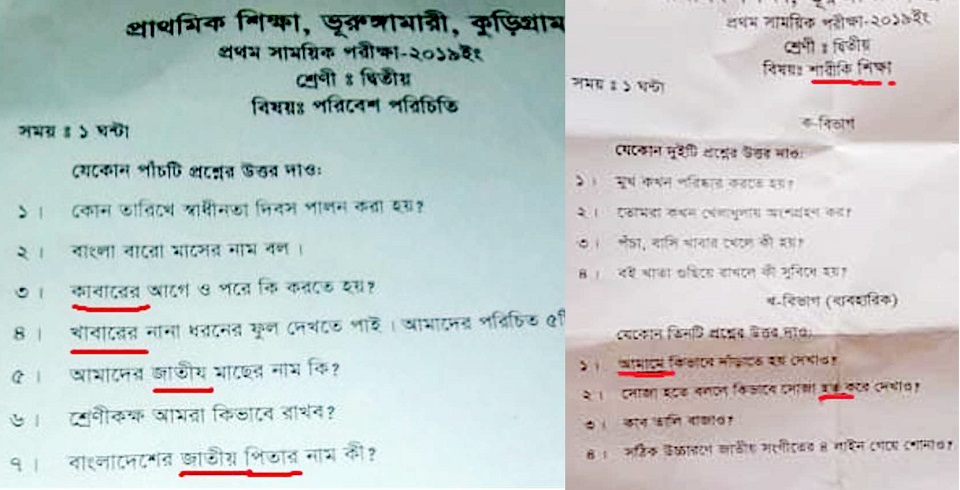 প্রাথমিক শিক্ষা, ভূরুঙ্গামারী, কুড়িগ্রাম
প্রথম সাময়িক পরীক্ষা-২০১৯ইং
শ্রেণী ঃ দ্বিতীয়
বিষয়ঃ পরিবেশ পরিচিতি
সময় ঃ ১ ঘন্টা
যেকোন পাঁচটি প্রশ্নের উত্তর দাওঃ
১। কোন তারিখে স্বাধীনতা দিবস পালন করা হয়?
২। বাংলা বারো মাসের নাম বল।
৩। কাবারের আগে ও পরে কি করতে হয়?
৪। খাবারের নানা ধরনের ফুল দেখতে পাই। আমাদের পরিচিত ৫টি
৫। আমাদের জাতীয় মাছের নাম কি?
৬। শ্রেণীকক্ষ আমরা কিভাবে রাখব?
৭। বাংলাদেশের জাতীয় পিতার নাম কী?
প্রথম সাময়িক পরীক্ষা-২০১৯ইং
শ্রেণী ঃ দ্বিতীয়
বিষয়ঃ শারীকি শিক্ষা
সময় ঃ ১ ঘন্টা
ক-বিভাগ
যেকোন দুইটি প্রশ্নের উত্তর দাওঃ
১। মুখ কখন পরিষ্কার করতে হয়?
২। তোমরা কখন খেলাধুলায় অংশগ্রহণ কর?
৩। পঁচা, বাসি খাবার খেলে কী হয়?
৪। বই খাতা গুছিয়ে রাখলে কী সুবিধে হয়?
খ-বিভাগ (ব্যবহারিক)
যেকোন তিনটি প্রশ্নের উত্তর দাওঃ
১। আমামে কিভাবে দাঁড়াতে হয় দেখাও?
২। সোজা হতে বললে কিভাবে সোজা হত করে দেখাও?
৩। কাব তালি বাজাও?
৪। সঠিক উচ্চারণে জাতীয় সংগীতের ৪ লাইন গেয়ে শোনাও?